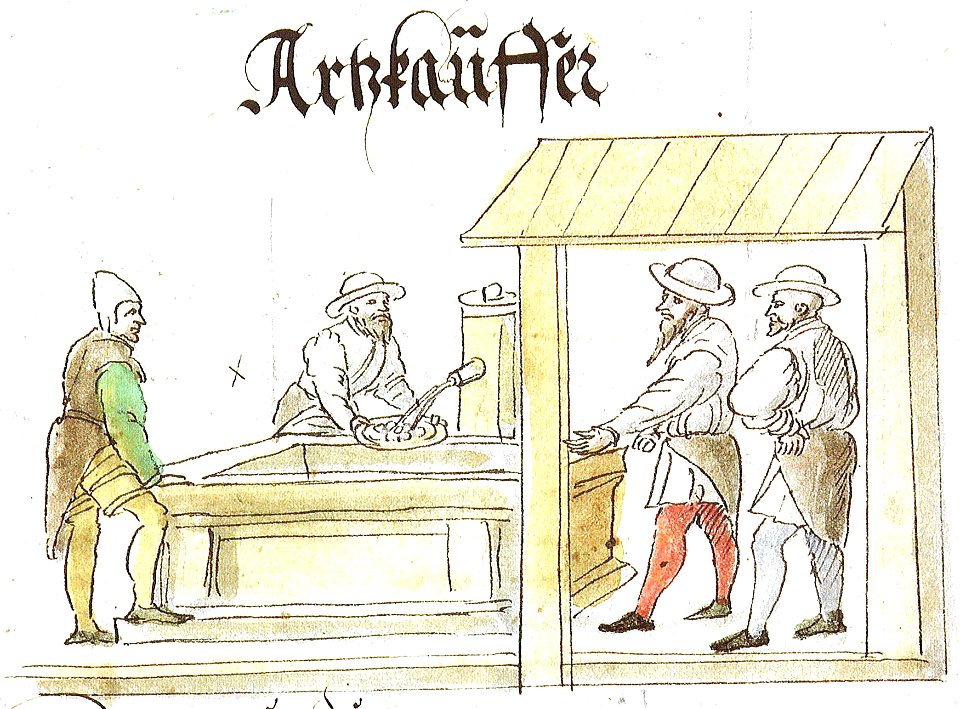 Artzkaüffer